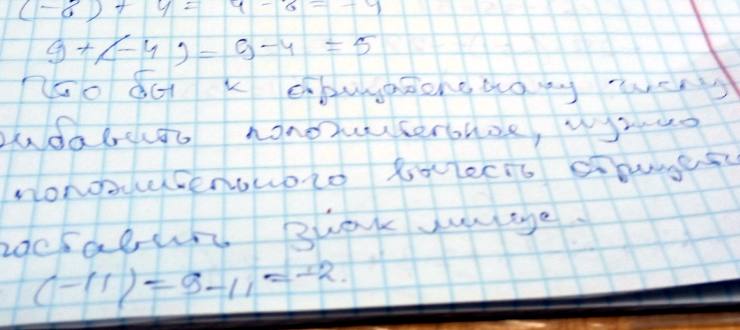 (-8) + 4 = 4 - 8 = -4
9 + (-4) = 9 - 4 = 5
Что бы к отрицательному числу
прибавить положительное, нужно
положительного вычесть отрицате
поставить знак минус.
(-11) = 9 - 11 = -2.